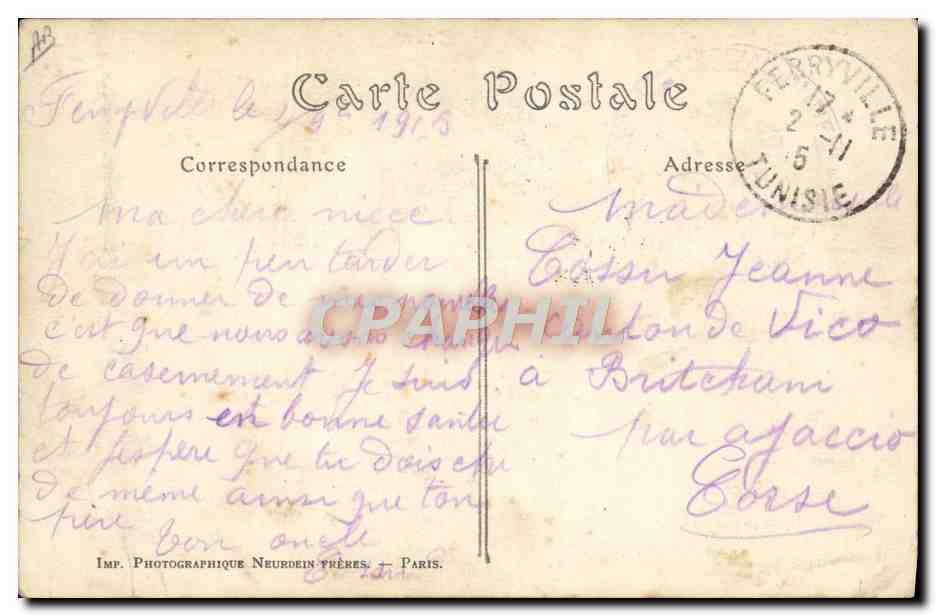 AB
Carte Postale
Ferryville le 1915
FERRYVILLE
17 *
2 -11
15
TUNISIE
Correspondance
Ma chere niece
J'ai un peu tarder
de donner de mes nouvelles
c'est que nous avons changer
de casernement Je suis
toujours en bonne santee
et J'espere que tu dois etre
de meme ainsi que ton
pere
ton oncle
Adresse
Mademoiselle
Cossu Jeanne
Canton de Vico
à
par ajaccio
Corse
CPAPHIL
Imp. Photographique Neurdein frères. — Paris.